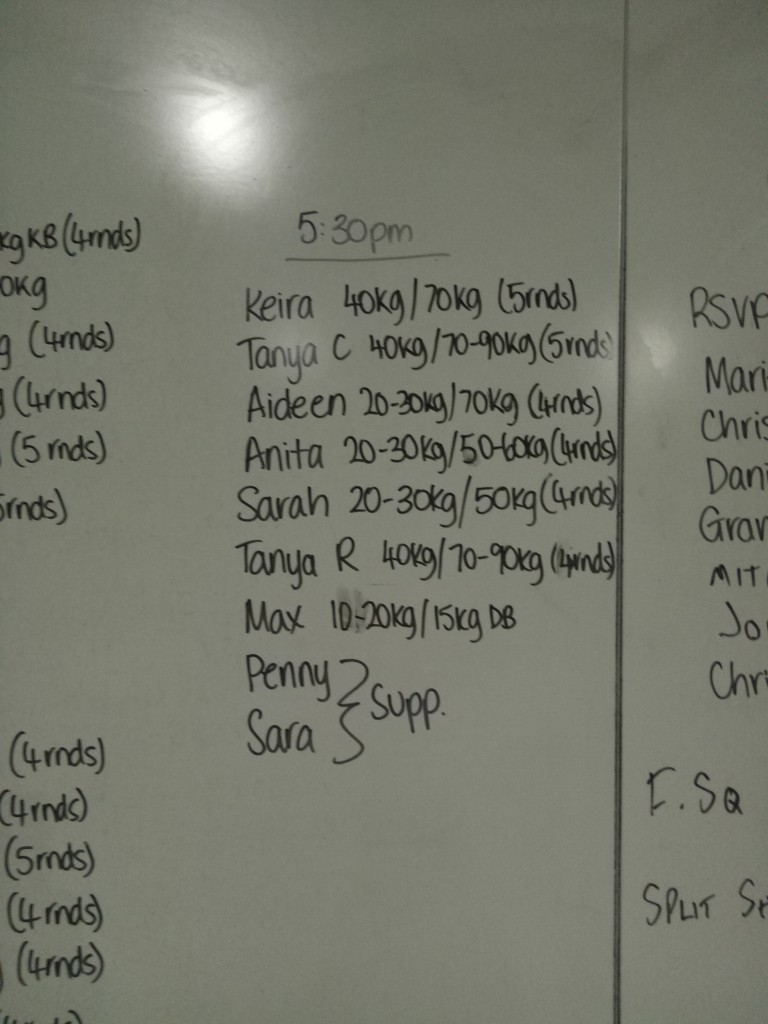 kgKB (4rnds)
0kg
g (4rnds)
(4rnds)
(5 rnds)
5rnds)
(4rnds)
(4rnds)
(5rnds)
(4rnds)
(4rnds)
5:30pm
Keira 40kg/70kg (5rnds)
Tanya C 40kg/70-90kg (5rnds)
Aideen 20-30kg/70kg (4rnds)
Anita 20-30kg/50-60kg (4rnds)
Sarah 20-30kg/50kg (4rnds)
Tanya R 40kg/70-90kg (4rnds)
Max 10-20kg/15kg DB
Penny
Sara } Supp.
RSVP
Mari
Chris
Dani
Gran
MIT
Jo
Chri
F. SQ
SPLIT S